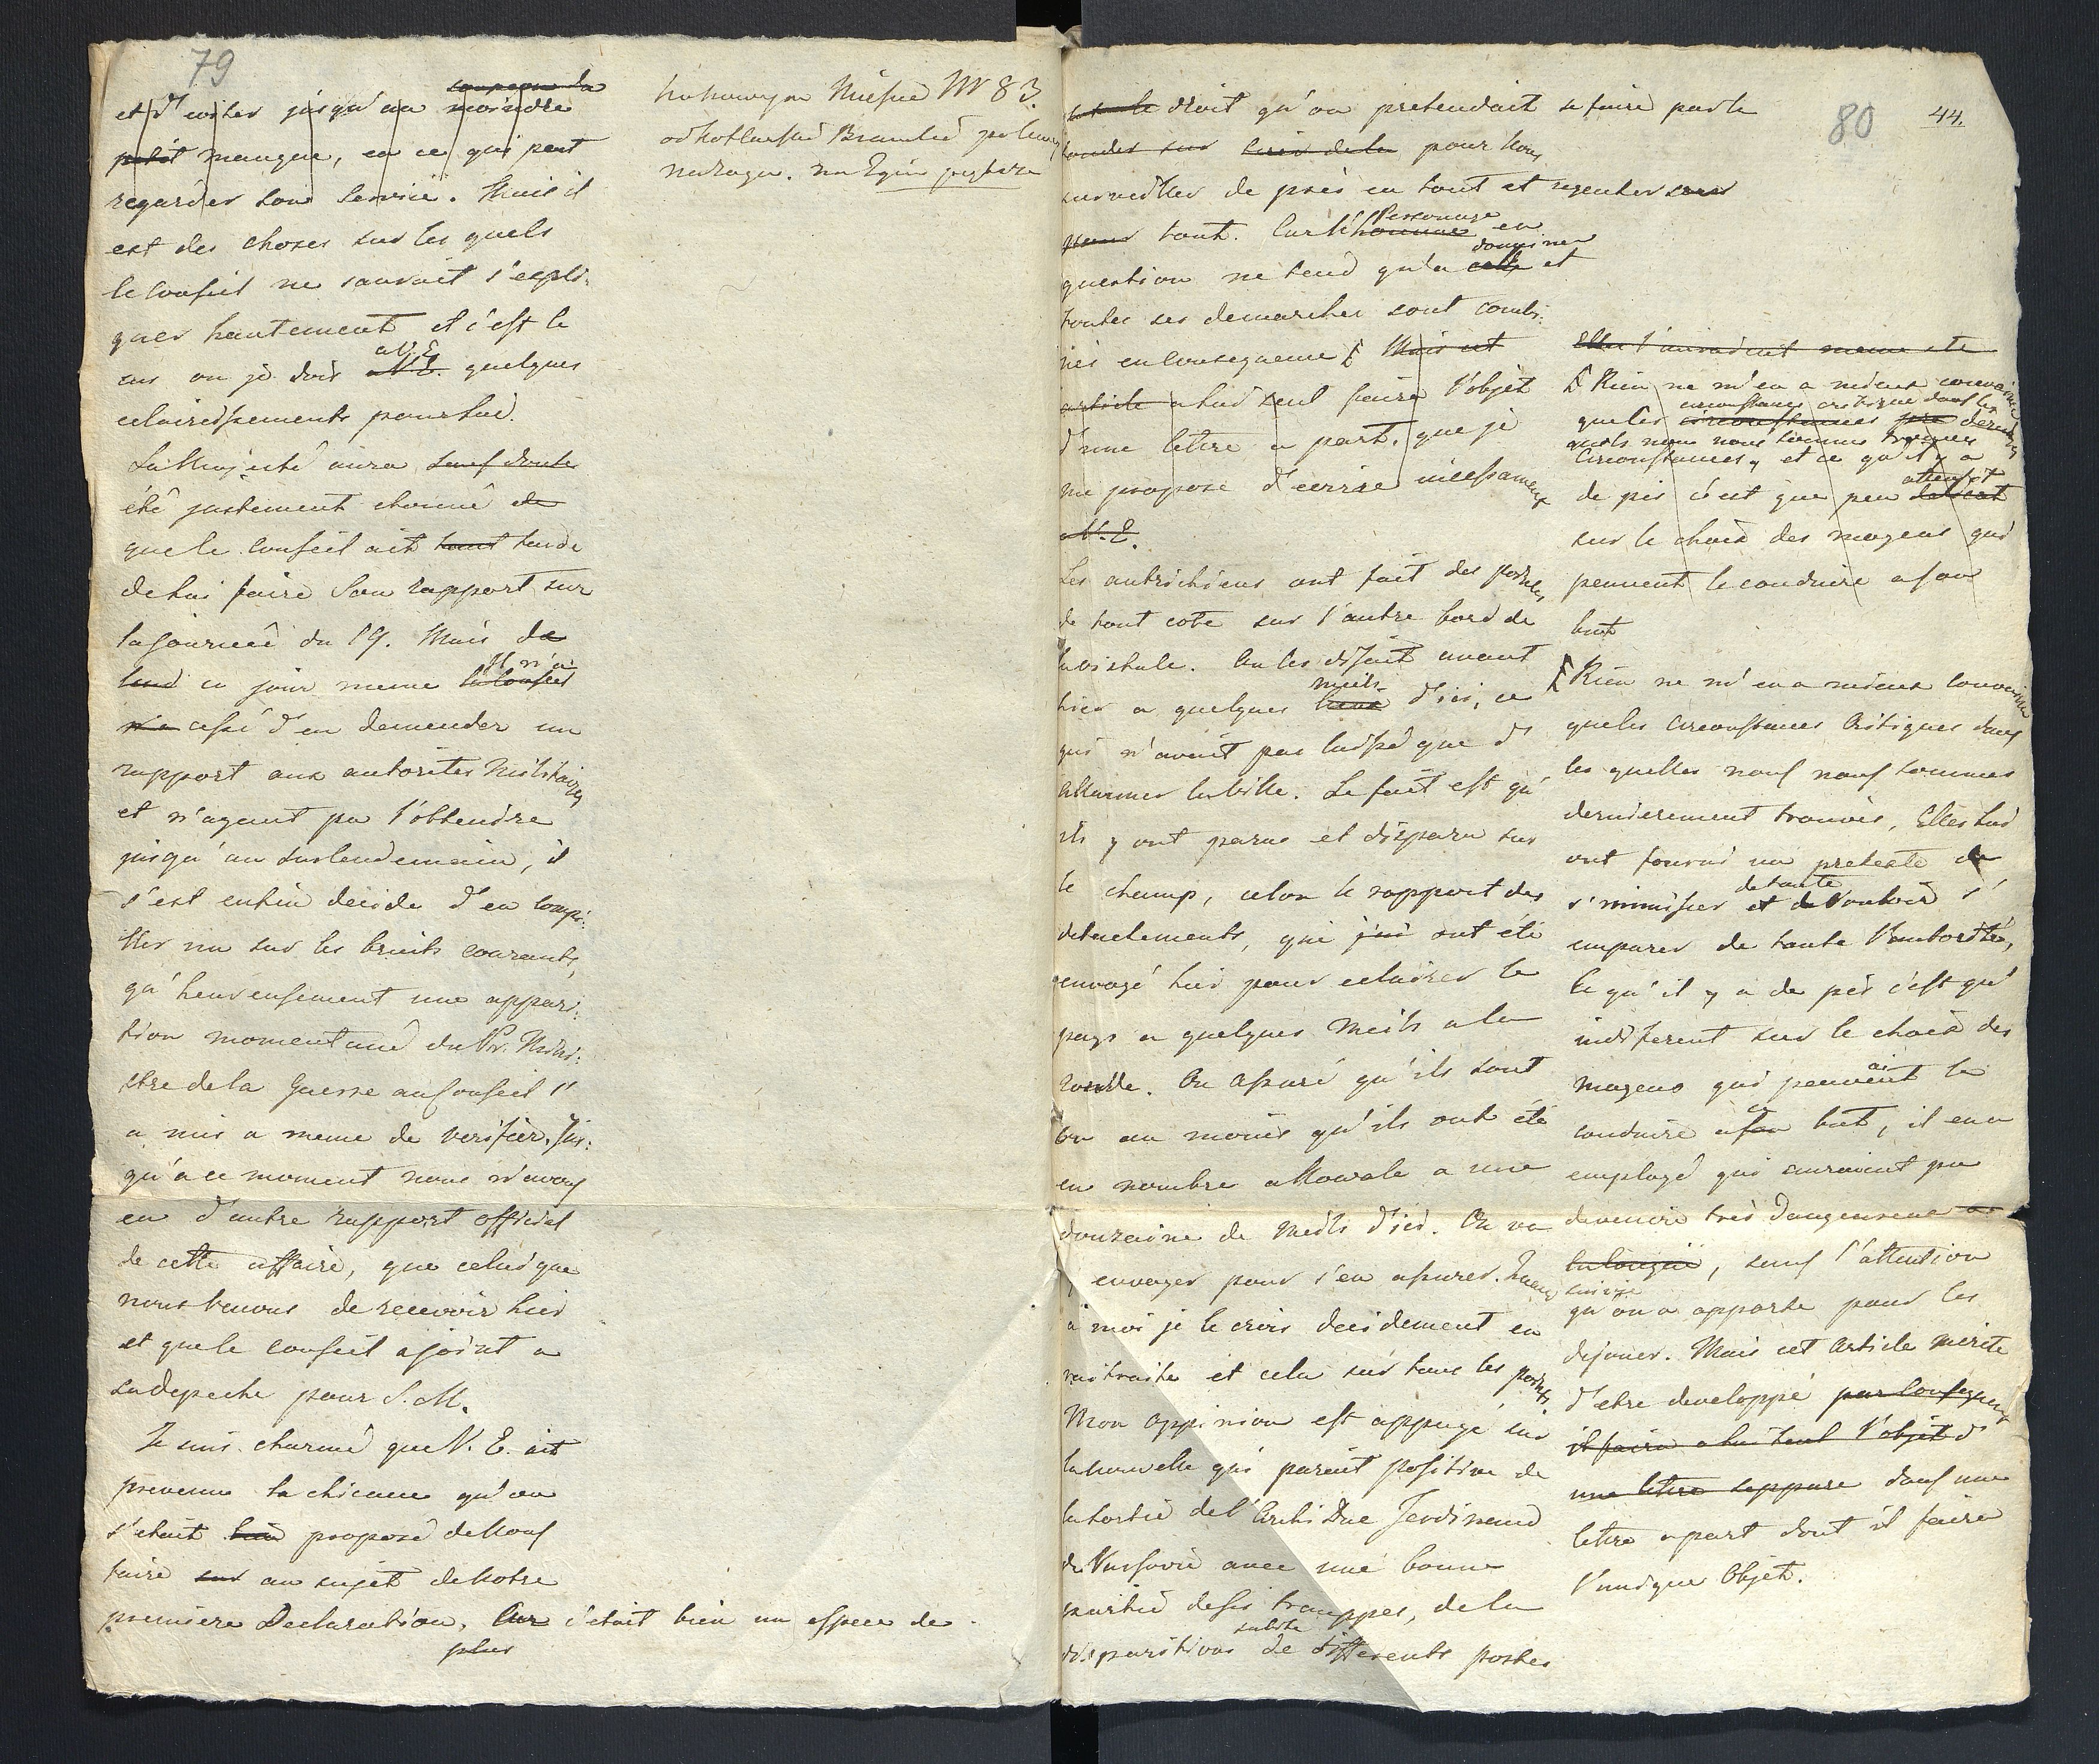 79
soupçon de
et d'eviter jusqu'au moindre
petit manque, en ce qui peut
regarder son service. Mais il
est des choses sur les quels
le Conseil ne sauroit s'expli:
quer hautement et c'est le
cas ou je dois a V. E. quelques
eclaircissements pour lui.
Sa Majesté aura sauf doute
été justement etonné de
que le Conseil ait tant tardé
de lui faire son rapport sur
la journée du 19. Mais de
tard ce jour meme le Conseil
Il n'a
n'a cessé d'en demender un
rapport aux autorités Militaires
et n'ayant pu l'obtendre
jusqu'au surlendemain, il
s'est enfin decide d'en compi:
ller un sur les bruits courants,
qu'heureusement une appari:
tion momentané du Pr. Mini:
stre de la Guerre au Conseil l'
a mis a meme de verifier. Jus:
qu'a ce moment nous n'avons
eu d'autre rapport officiel
de cette affaire, que celui que
nous venons de recevoir hier
et que le conseil ajoint a
sa depeche pour S. M.
Je suis charmé que V. E. ait
prevenu la chicane qu'on
s'etait bien proposé de Nous
faire sur au sujet de Notre
premiere Declaration. Car c'était bien un espece de
plus
Nr 83.
80
44.
sur le droit qu'on pretendait se faire par la
pour Nous
surveiller de près en tout et regenter sur
tout. Car l'homme en
Personnage
question ne tend qu'a celle et
dominer
toutes ses demarches sont combi:
nés en consequence Mais cet
article a lui seul faira l'objet
d'une lettre a part, que je
me propose d'ecrire incessament
a V. E.
Les autrichiens ont fait des postes
de tout coté sur l'autre bord de
la vistule. On les disait avant
hier a quelques lieus d'ici, ce
meils
qui n'avait pas laissé que d'
allarmer la Ville. Le fait est qu'
ils y ont parus et disparu sur
le champ, selon le rapport des
detachements, qui j'ai ont été
envoyé hier pour eclairer le
pays a quelques Meils a la
ronde. On assure qu'ils sont
ou au moins qu'ils ont été
en nombre a Kowale a une
douzaine de Meils d'ici. On va
y envoyer pour s'en assurer. Quand
à moi je le crois decidement en
raitraite et cela sur tous les postes
Mon oppinion est appuyé sur
la nouvelle qui parait positive de
la sortie de l'Archi Duc Ferdinand
de Varsovie avec une bonne
partie de ses trouppes, de la
subite
disparitions de differents postes
Elles l'auraient meme ete
Rien ne m'en a mieux convaincu
que les circonstances
circonstance critique dans les
quels nous nous sommes trouvés
circonstances, et ce qu'il y a
attentif
de pis c'est que peu delicat
sur le choix des moyens qui
peuvent le conduire a son
but
Rien ne m'en a mieux convaincu
que les circonstances Critiques dans
les quelles nous nous sommes
dernierement trouvés. Elles lui
ont fourni un pretexte de
de toute
s'immiscer et de Vouloir s'
emparer de toute l'autorité,
Ce qu'il y a de pis c'est qu'
indifferent sur le choix des
moyens qui peuvent le
ai
conduire a son but, il en a
ce
employé qui auraient pu
devenire très dangereuse a
la longue, sauf l'attention
suivie
qu'on a apporté pour les
dejouer. Mais cet article mérite
d'etre developpé par consequent
il faira a lui seul l'objet d'
une lettre seppare dans une
lettre apart dont il faira
l'unique Objet.